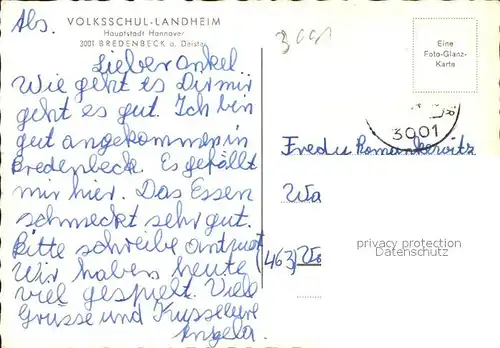 Abs.
VOLKSSCHUL-LANDHEIM
Hauptstadt Hannover
3001 BREDENBECK a. Deister
3001
Eine
Foto-Glanz-
Karte
3001
Lieber onkel.
Wie geht es Dir mir
geht es gut. Ich bin
gut angekommen in
Bredenbeck. Es gefällt
mir hier. Das Essen
schmeckt sehr gut.
Bitte schreibe antwort
Wir haben heute
viel gespielt. Viele
Grüsse und Küsse
Angela.
Fredu Romankewitz
Wa
(463)
privacy protection
Datenschutz